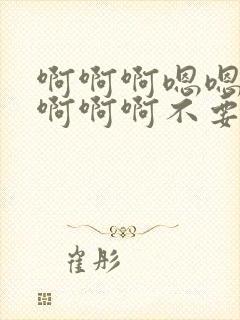 啊啊啊嗯嗯
啊啊啊不要
崔彤